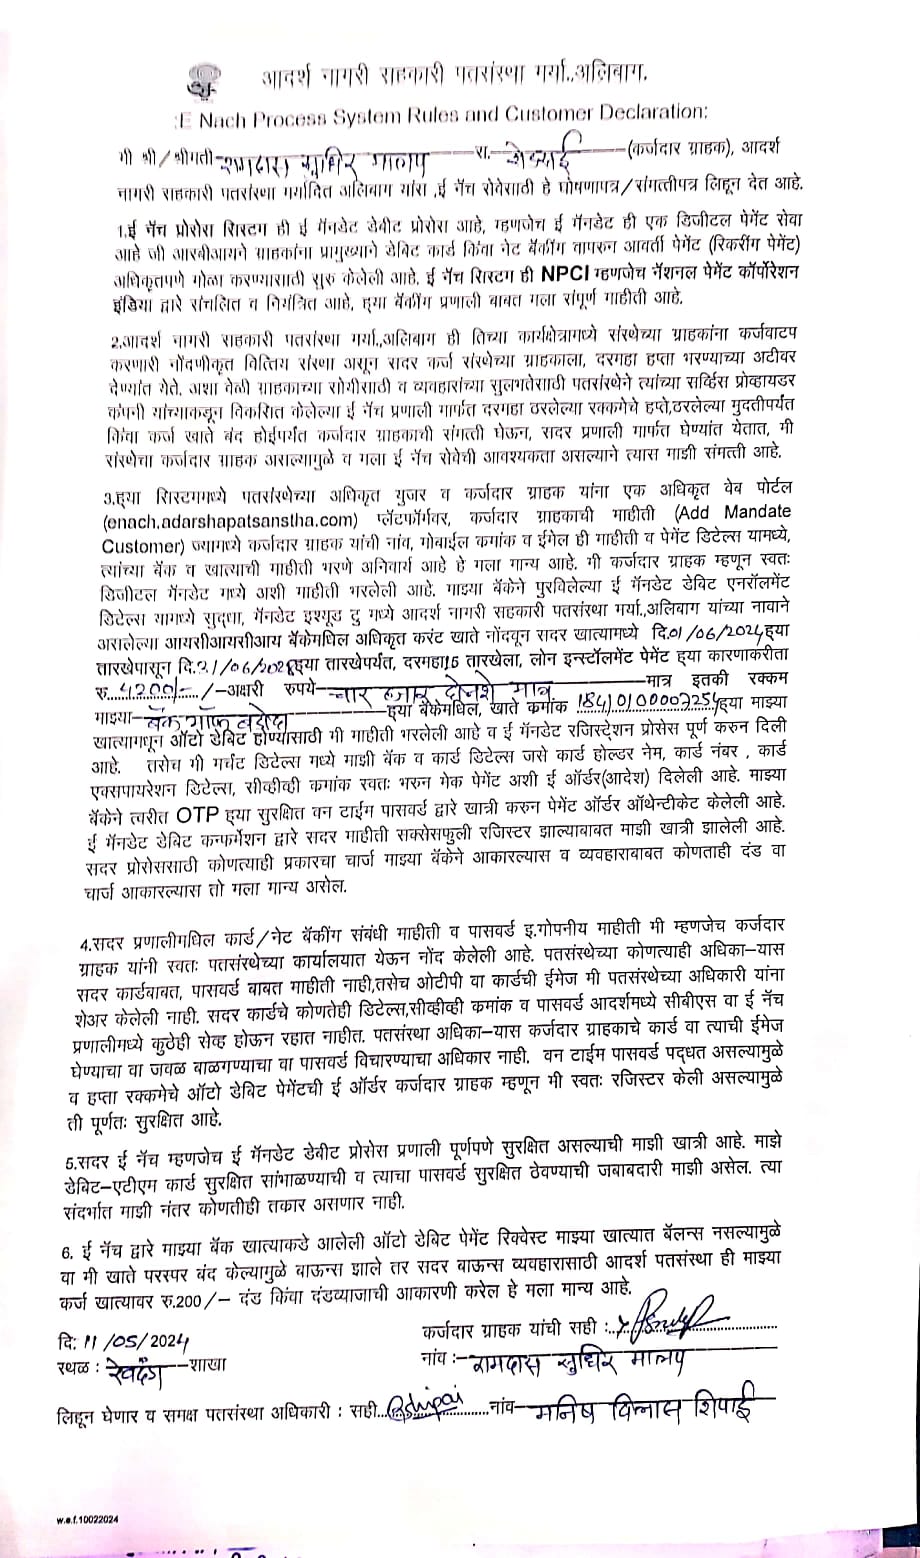 आदर्श नागरी सहकारी पतसंस्था मर्या.,अलिबाग.
:E Nach Process System Rules and Customer Declaration:
मी श्री/श्रीमती रामदास सुधिर मालप रा. (कर्जदार ग्राहक), आदर्श
नागरी सहकारी पतसंस्था मर्यादित अलिबाग यांस ,ई नॅच सेवेसाठी हे घोषणापत्र/संमत्तीपत्र लिहून देत आहे.
1.ई नॅच प्रोसेस सिस्टम ही ई मॅनडेट डेबीट प्रोसेस आहे, म्हणजेच ई मॅनडेट ही एक डिजीटल पेमेंट सेवा
आहे जी आरबीआयने ग्राहकांना प्रामुख्याने डेबिट कार्ड किंवा नेट बँकींग वापरुन आवर्ती पेमेंट (रिकरींग पेमेंट)
अधिकृतपणे गोळा करण्यासाठी सुरु केलेली आहे. ई नॅच सिस्टम ही NPCI म्हणजेच नॅशनल पेमेंट कॉर्पोरेशन
इंडिया द्वारे संचलित व नियंत्रित आहे. हया बँकींग प्रणाली बाबत मला संपूर्ण माहीती आहे.
2.आदर्श नागरी सहकारी पतसंस्था मर्या.,अलिबाग ही तिच्या कार्यक्षेत्रामध्ये संस्थेच्या ग्राहकांना कर्जवाटप
करणारी नोंदणीकृत वित्तिय संस्था असून सदर कर्ज संस्थेच्या ग्राहकाला, दरमहा हप्ता भरण्याच्या अटीवर
देण्यांत येते. अशा वेळी ग्राहकाच्या सोयीसाठी व व्यवहारांच्या सुलभतेसाठी पतसंस्थेने त्यांच्या सर्व्हिस प्रोव्हायडर
कंपनी यांच्याकडून विकसित केलेल्या ई नॅच प्रणाली मार्फत दरमहा ठरलेल्या रक्कमेचे हप्ते,ठरलेल्या मुदतीपर्यंत
किंवा कर्ज खाते बंद होईपर्यंत कर्जदार ग्राहकाची संमत्ती घेऊन, सदर प्रणाली मार्फत घेण्यांत येतात, मी
संस्थेचा कर्जदार ग्राहक असल्यामुळे व मला ई नॅच सेवेची आवश्यकता असल्याने त्यास माझी संमत्ती आहे.
3.हया सिस्टममध्ये पतसंस्थेच्या अधिकृत युजर व कर्जदार ग्राहक यांना एक अधिकृत वेब पोर्टल
(enach.adarshapatsanstha.com) प्लॅटफॉर्मवर, कर्जदार ग्राहकाची माहीती (Add Mandate
Customer) ज्यामध्ये कर्जदार ग्राहक यांची नांव, मोबाईल कमांक व ईमेल ही माहीती व पेमेंट डिटेल्स यामध्ये,
त्यांच्या बँक व खात्याची माहीती भरणे अनिवार्य आहे हे मला मान्य आहे. मी कर्जदार ग्राहक म्हणून स्वतः
डिजीटल मॅनडेट मध्ये अशी माहीती भरलेली आहे. माझ्या बँकेने पुरविलेल्या ई मॅनडेट डेबिट एनरॉलमेंट
डिटेल्स यामध्ये सुद्धा, मॅनडेट इश्यूड टु मध्ये आदर्श नागरी सहकारी पतसंस्था मर्या.,अलिबाग यांच्या नावाने
असलेल्या आयसीआयसीआय बँकेमधिल अधिकृत करंट खाते नोंदवून सदर खात्यामध्ये दि.01/06/2024हया
तारखेपासून दि.21/06/2028हया तारखेपर्यंत, दरमहा15 तारखेला, लोन इन्स्टॉलमेंट पेमेंट हया कारणाकरीता
रु.4200/-/-अक्षरी रुपये चार हजार दोनशे मात्र मात्र इतकी रक्कम
माझ्या बँक ऑफ बडोदा हया बँकेमधिल, खाते कमांक 18410100007254हया माझ्या
खात्यामधून ऑटो डेबिट होण्यासाठी मी माहीती भरलेली आहे व ई मॅनडेट रजिस्ट्रेशन प्रोसेस पूर्ण करुन दिली
आहे. तसेच मी मर्चंट डिटेल्स मध्ये माझी बँक व कार्ड डिटेल्स जसे कार्ड होल्डर नेम, कार्ड नंबर , कार्ड
एक्सपायरेशन डिटेल्स, सीव्हीव्ही कमांक स्वतः भरुन मेक पेमेंट अशी ई ऑर्डर(आदेश) दिलेली आहे. माझ्या
बँकेने त्वरीत OTP हया सुरक्षित वन टाईम पासवर्ड द्वारे खात्री करुन पेमेंट ऑर्डर ऑथेन्टीकेट केलेली आहे.
ई मॅनडेट डेबिट कन्फर्मेशन द्वारे सदर माहीती सक्सेसफुली रजिस्टर झाल्याबाबत माझी खात्री झालेली आहे.
सदर प्रोसेससाठी कोणत्याही प्रकारचा चार्ज माझ्या बँकेने आकारल्यास व व्यवहाराबाबत कोणताही दंड वा
चार्ज आकारल्यास तो मला मान्य असेल.
4.सदर प्रणालीमधिल कार्ड/नेट बँकींग संबंधी माहीती व पासवर्ड इ.गोपनीय माहीती मी म्हणजेच कर्जदार
ग्राहक यांनी स्वतः पतसंस्थेच्या कार्यालयात येऊन नोंद केलेली आहे. पतसंस्थेच्या कोणत्याही अधिका–यास
सदर कार्डबाबत, पासवर्ड बाबत माहीती नाही,तसेच ओटीपी वा कार्डची ईमेज मी पतसंस्थेच्या अधिकारी यांना
शेअर केलेली नाही. सदर कार्डचे कोणतेही डिटेल्स,सीव्हीव्ही कमांक व पासवर्ड आदर्शमध्ये सीबीएस वा ई नॅच
प्रणालीमध्ये कुठेही सेव्ह होऊन रहात नाहीत. पतसंस्था अधिका–यास कर्जदार ग्राहकाचे कार्ड वा त्याची ईमेज
घेण्याचा वा जवळ बाळगण्याचा वा पासवर्ड विचारण्याचा अधिकार नाही. वन टाईम पासवर्ड पद्धत असल्यामुळे
व हप्ता रक्कमेचे ऑटो डेबिट पेमेंटची ई ऑर्डर कर्जदार ग्राहक म्हणून मी स्वतः रजिस्टर केली असल्यामुळे
ती पूर्णतः सुरक्षित आहे.
5.सदर ई नॅच म्हणजेच ई मॅनडेट डेबीट प्रोसेस प्रणाली पूर्णपणे सुरक्षित असल्याची माझी खात्री आहे. माझे
डेबिट–एटीएम कार्ड सुरक्षित सांभाळण्याची व त्याचा पासवर्ड सुरक्षित ठेवण्याची जबाबदारी माझी असेल. त्या
संदर्भात माझी नंतर कोणतीही तकार असणार नाही.
6. ई नॅच द्वारे माझ्या बँक खात्याकडे आलेली ऑटो डेबिट पेमेंट रिक्वेस्ट माझ्या खात्यात बॅलन्स नसल्यामुळे
वा मी खाते परस्पर बंद केल्यामुळे बाऊन्स झाले तर सदर बाऊन्स व्यवहारासाठी आदर्श पतसंस्था ही माझ्या
कर्ज खात्यावर रु.200/– दंड किंवा दंडव्याजाची आकारणी करेल हे मला मान्य आहे.
दि: 11/05/2024 कर्जदार ग्राहक यांची सही :
स्थळ : रेवदंडा शाखा नांव :- रामदास सुधिर मालप
लिहून घेणार व समक्ष पतसंस्था अधिकारी : सही नांव मनिष विलास शिपाई
w.e.f.10022024